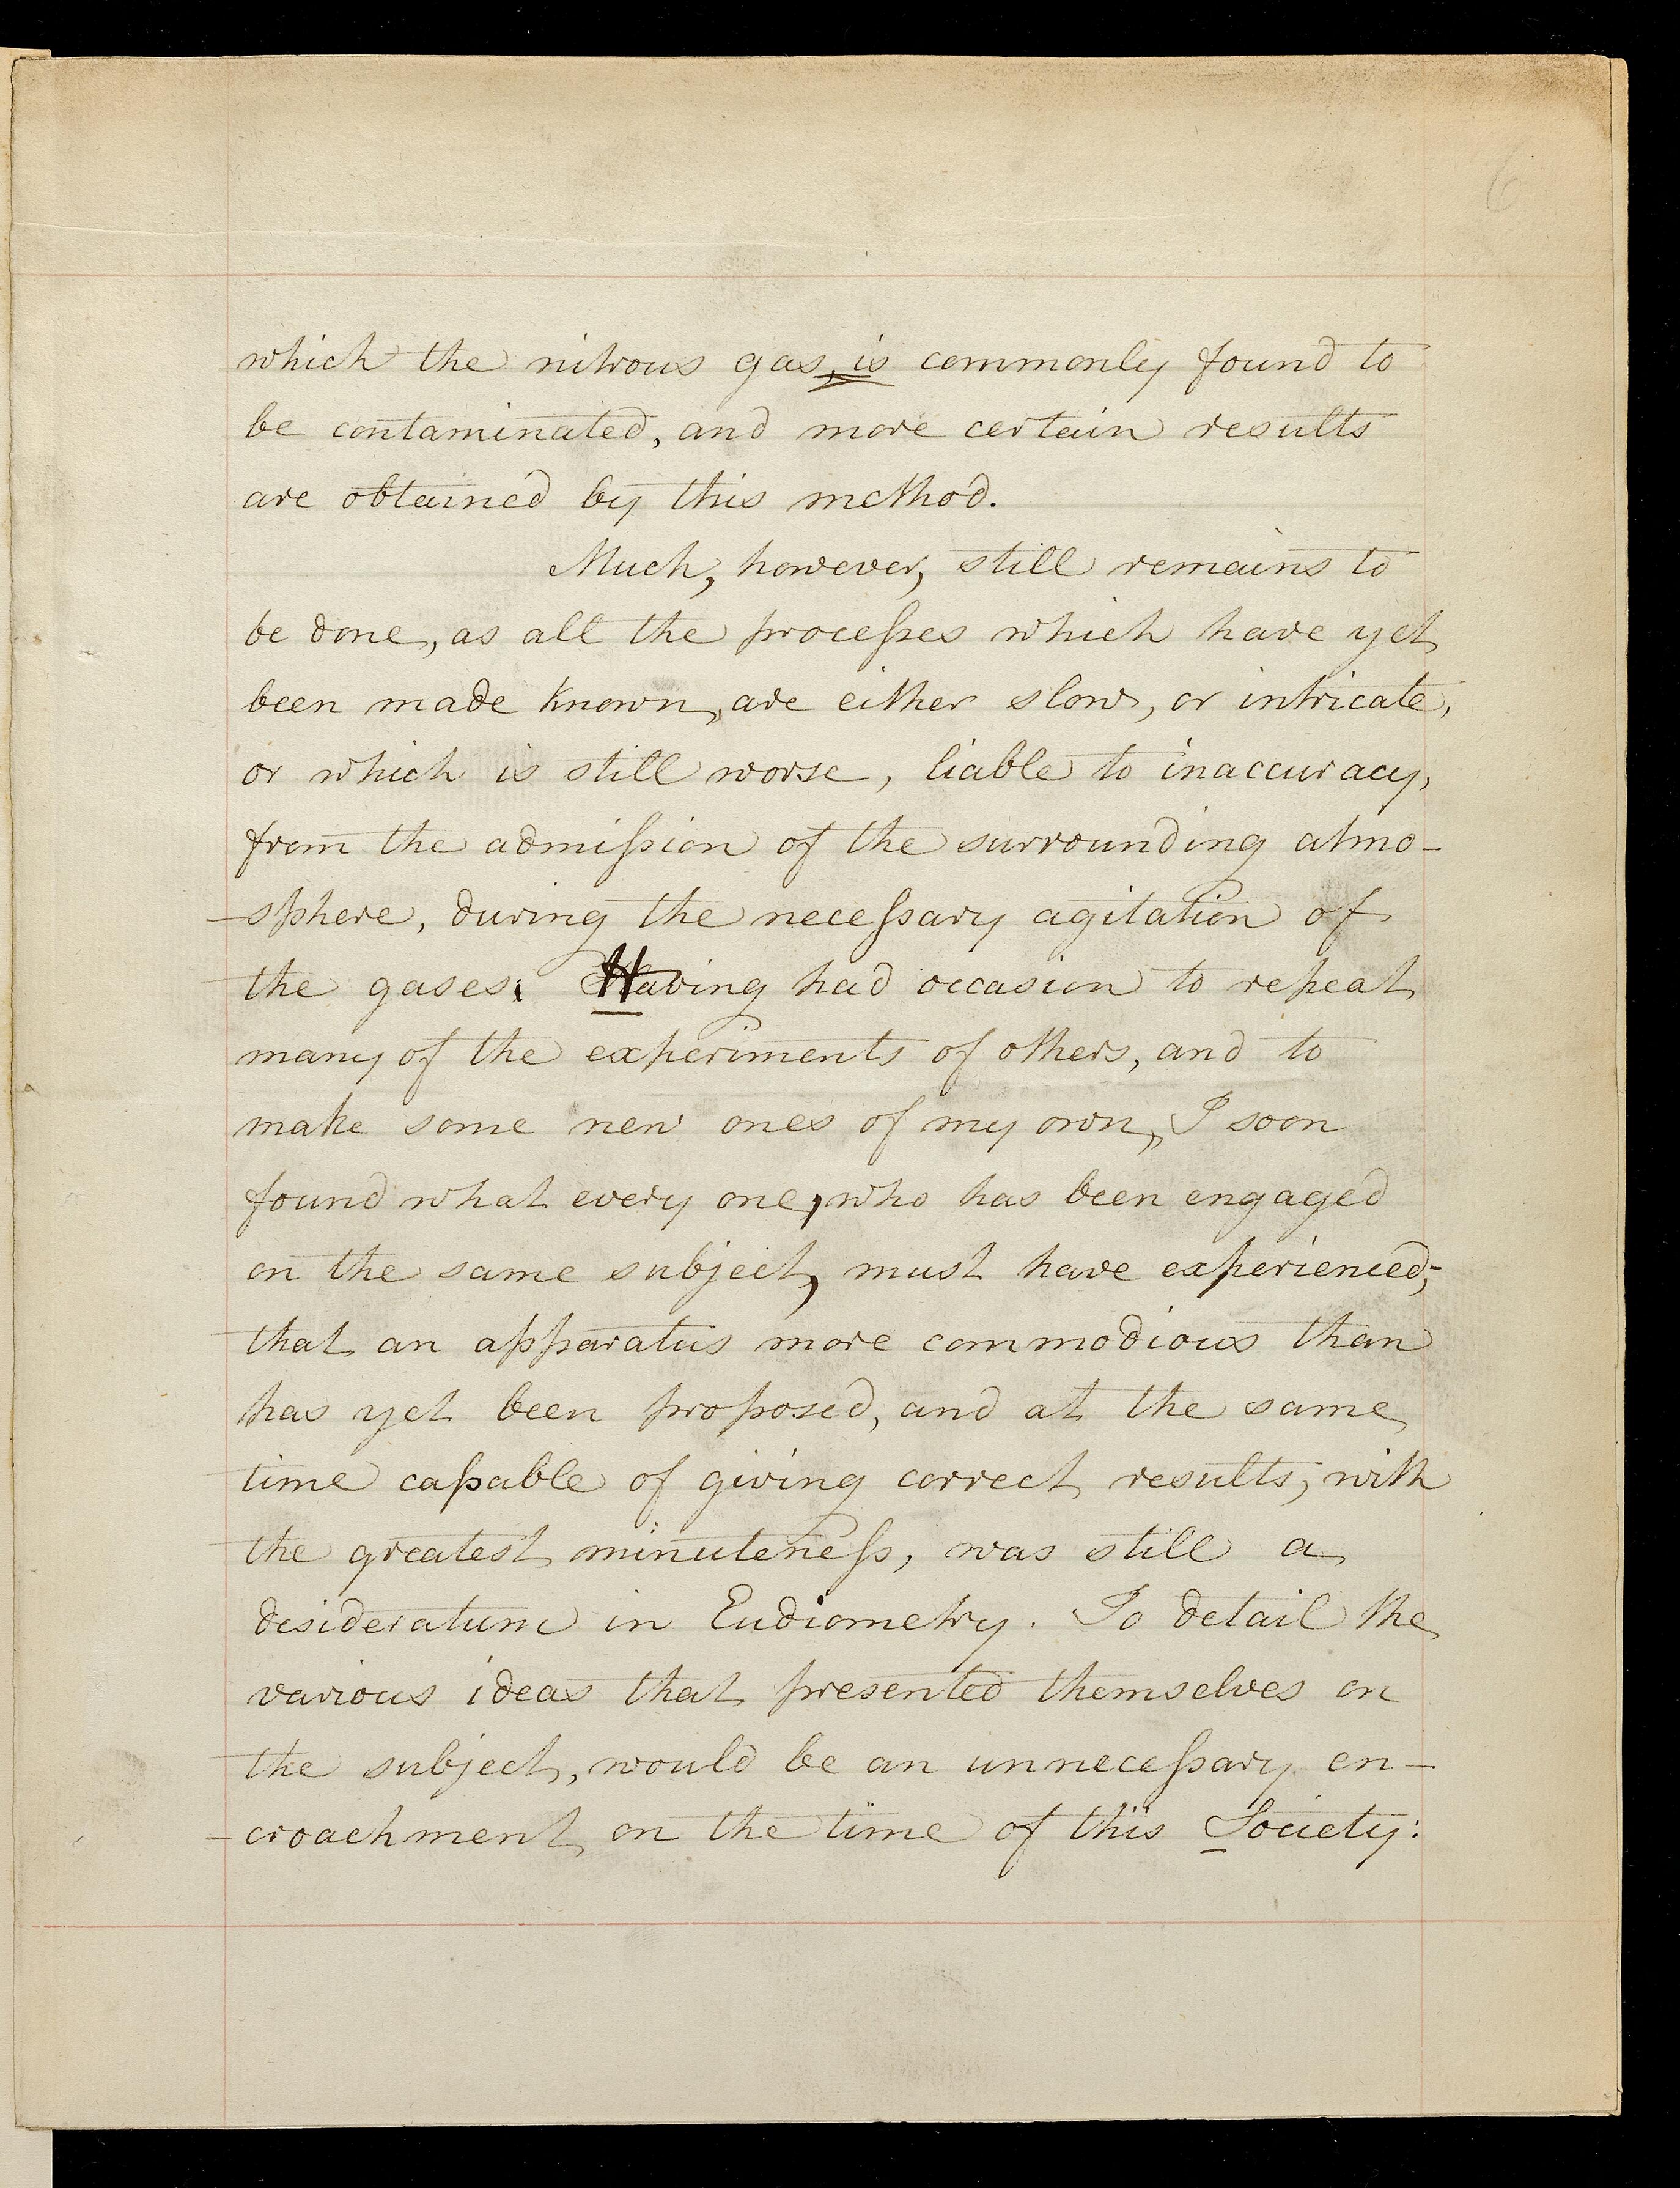 6
which the nitrous gas, is commonly found to
be contaminated, and more certain results
are obtained by this method.
Much, however, still remains to
be done, as all the proceſses which have yet
been made known, are either slow, or intricate,
or which is still worse, liable to inaccuracy,
from the admiſsion of the surrounding atmo-
-sphere, during the neceſsary agitation of
the gases. Having had occasion to repeat
many of the experiments of others, and to
make some new ones of my own, I soon
found what every one, who has been engaged
on the same subject, must have experienced;
that an apparatus more commodious than
has yet been proposed, and at the same
time capable of giving correct results, with
the greatest minuteneſs, was still a
desideratum in Eudiometry. To detail the
various ideas that presented themselves on
the subject, would be an unneceſsary en-
-croachment on the time of this Society: